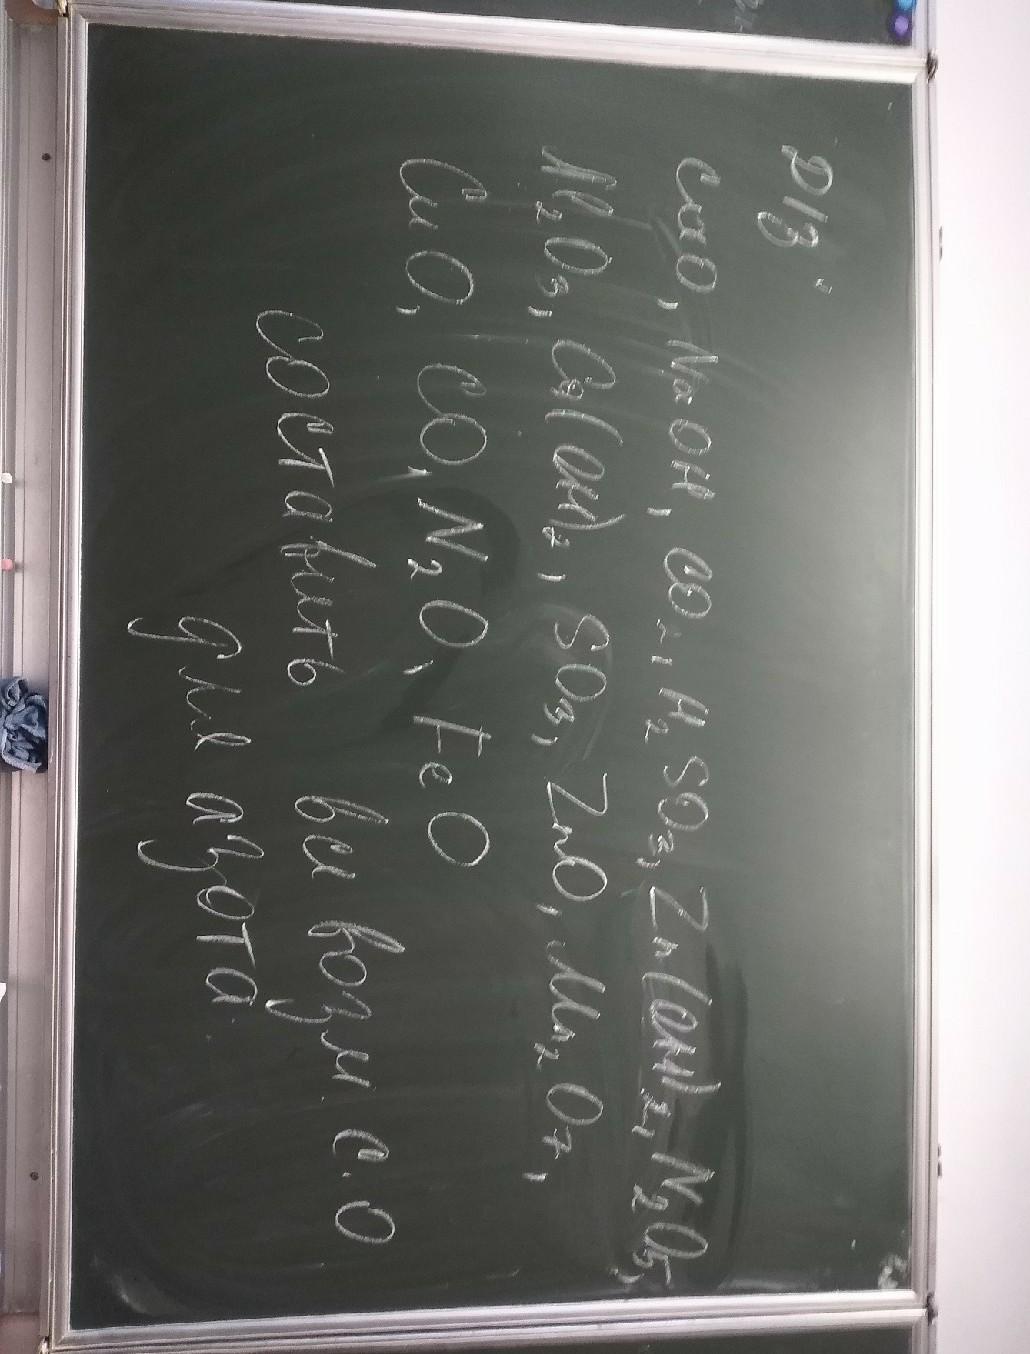 D/з.
CaO, NaOH, CO₂, H₂SO₃, Zn(OH)₂, N₂O₅,
Al₂O₃, Ca(OH)₂, SO₃, ZnO, Mn₂O₇,
CuO, CO, N₂O, FeO
составить все возм. с.о
для азота.